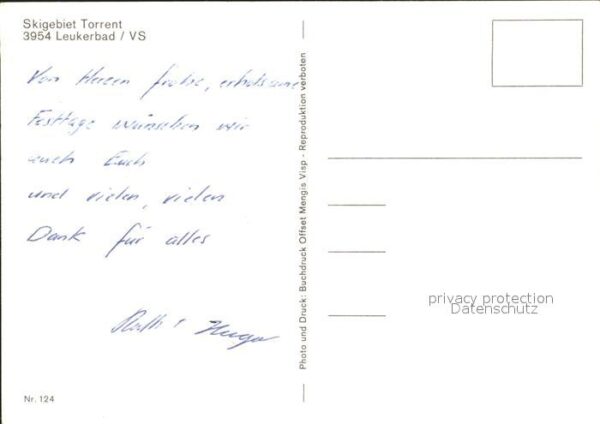 Skigebiet Torrent
3954 Leukerbad / VS
Von Herzen frohe, erholsame
Festtage wünschen wir
auch Euch
und vielen, vielen
Dank für alles
Hugo
Nr. 124
Photo und Druck: Buchdruck Offset Mengis Visp - Reproduktion verboten
privacy protection
Datenschutz